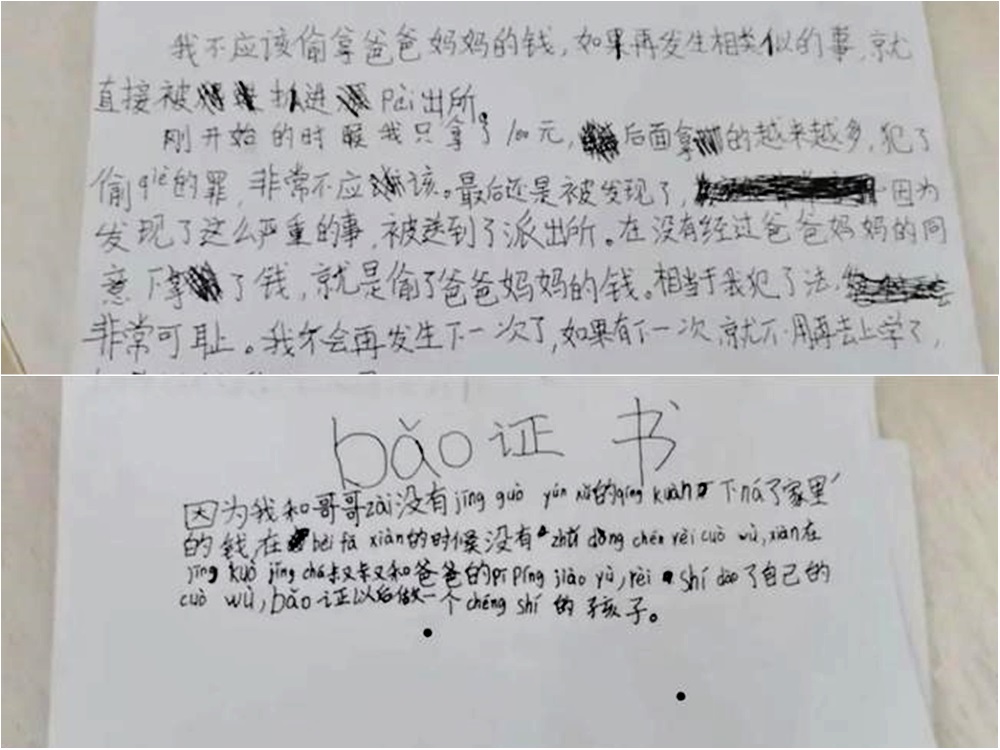 我不应该偷拿爸爸妈妈的钱，如果再发生相类似的事，就
直接被抓进pài出所。
刚开始的时候我只拿了100元，后面拿的越来越多，犯了
偷qiè的罪，非常不应该。最后还是被发现了，因为
发现了这么严重的事，被送到了派出所。在没有经过爸爸妈妈的同
意下拿了钱，就是偷了爸爸妈妈的钱。相当于我犯了法，
非常可耻。我不会再发生下一次了，如果有下一次，就不用再去上学了，
bǎo证书
因为我和哥哥zài没有jīng guò yǔn xǔ的qíng kuàng下ná了家里
的钱，在bèi fā xiàn的时候没有zhǔ dòng chén rèi cuò wù，xiàn在
jīng kuò jǐng chá叔叔和爸爸的pī píng jiào yù，rèi shí dào了自己的
cuò wù，bǎo证以后做一个chéng shí的孩子。